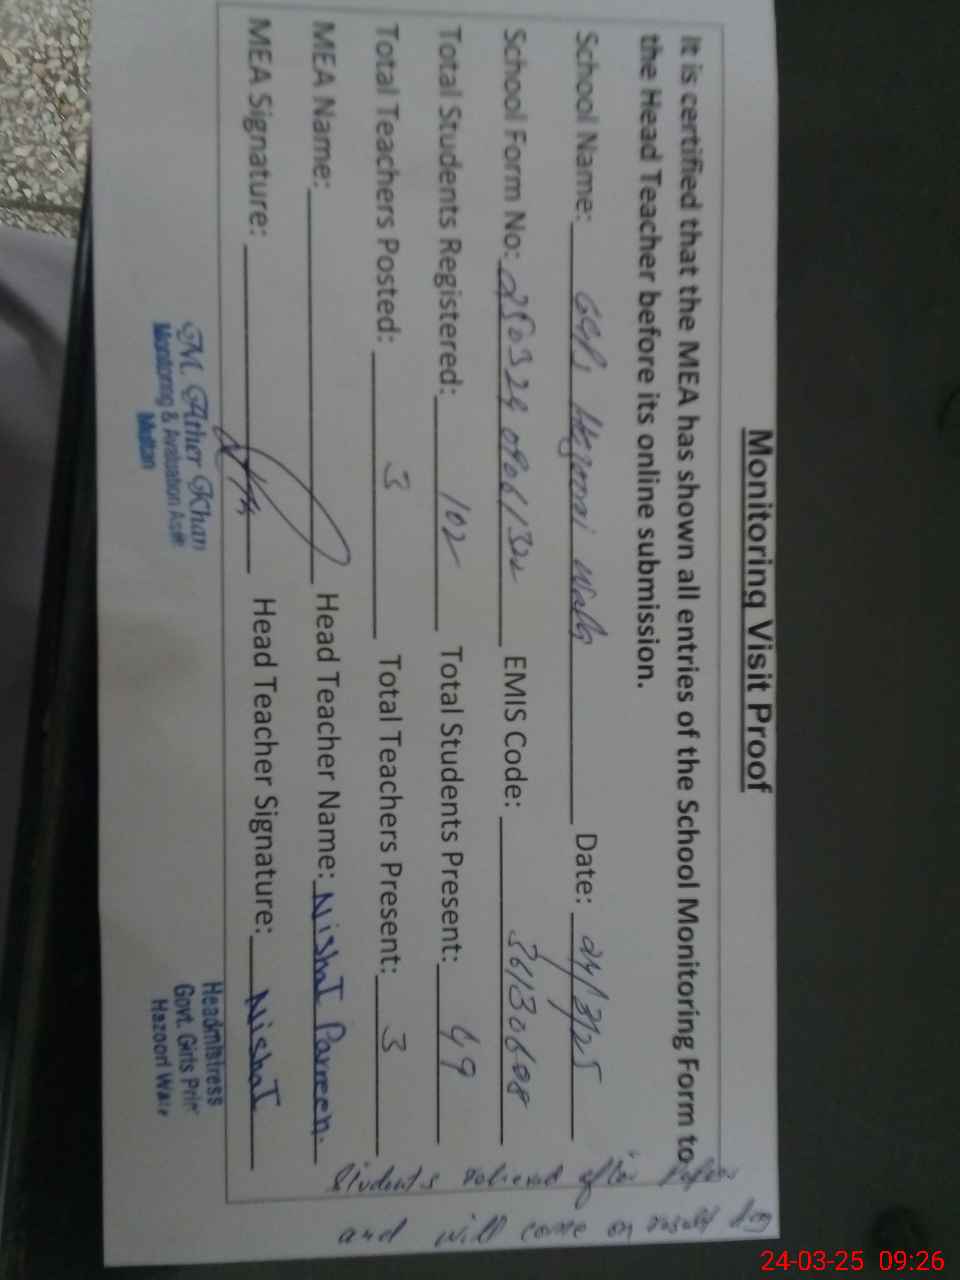 Monitoring Visit Proof
It is certified that the MEA has shown all entries of the School Monitoring Form to
the Head Teacher before its online submission.
School Name: GGPS Hazoori Wala Date: 24/3/25
School Form No: EMIS Code: 36130608
Total Students Registered: 102 Total Students Present: 49
Total Teachers Posted: 3 Total Teachers Present: 3
MEA Name: Head Teacher Name: Nishat Parveen.
MEA Signature: Head Teacher Signature: Nishat
M. Ather Khan
Monitoring & Avaluation Asstt
Multan
Headmistress
Govt. Girls Prim
Hazoori Wala
Students relieved after Papers
and will come on result day
24-03-25 09:26